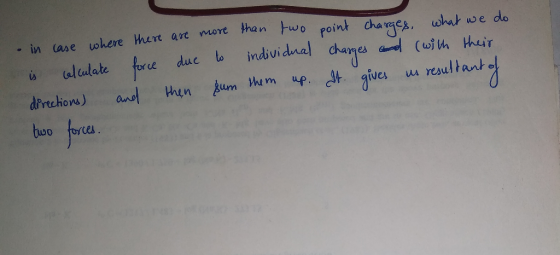 - in case where there are more than two point charges, what we do
is calculate force due to individual charges (with their
directions) and then sum them up. It gives us resultant of
two forces.